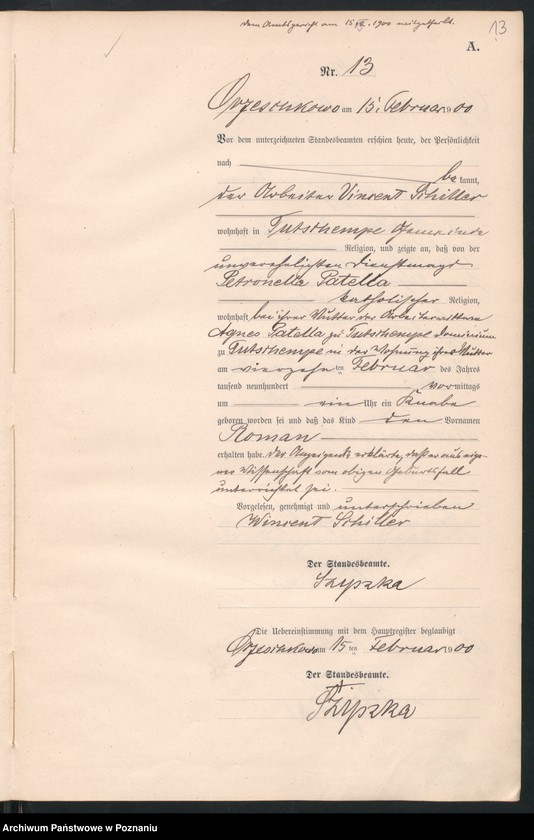 dem Amtsgericht am 15 1900 mitgetheilt.
13
A.
Nr. 13
Orzeschkowo am 15. Februar 1900
Vor dem unterzeichneten Standesbeamten erschien heute, der Persönlichkeit
nach
bekannt,
der Arbeiter Vincent Schiller
wohnhaft in Tutschempe Gemeinde
Religion, und zeigte an, daß von der
unverehelichten Dienstmagd
Petronella Patella
katholischer Religion,
wohnhaft bei ihrer Mutter der Arbeiterwittwe
Agnes Patella zu Tutschempe Dominium
zu Tutschempe in der Wohnung ihrer Mutter
am vierzehnten Februar des Jahres
tausend neunhundert vormittags
um ein Uhr ein Knabe
geboren worden sei und daß das Kind den Vornamen
Roman
erhalten habe. Der Anzeigende erklärte, daß er aus eige-
ner Wissenschaft vom obigen Geburtsfall
unterrichtet sei.
Vorgelesen, genehmigt und unterschrieben
Wincent Schiller
Der Standesbeamte.
Szypzka
Die Uebereinstimmung mit dem Hauptregister beglaubigt
Orzeschkowo am 15 ten Februar 1900
Der Standesbeamte.
Szypzka
Archiwum Państwowe w Poznaniu